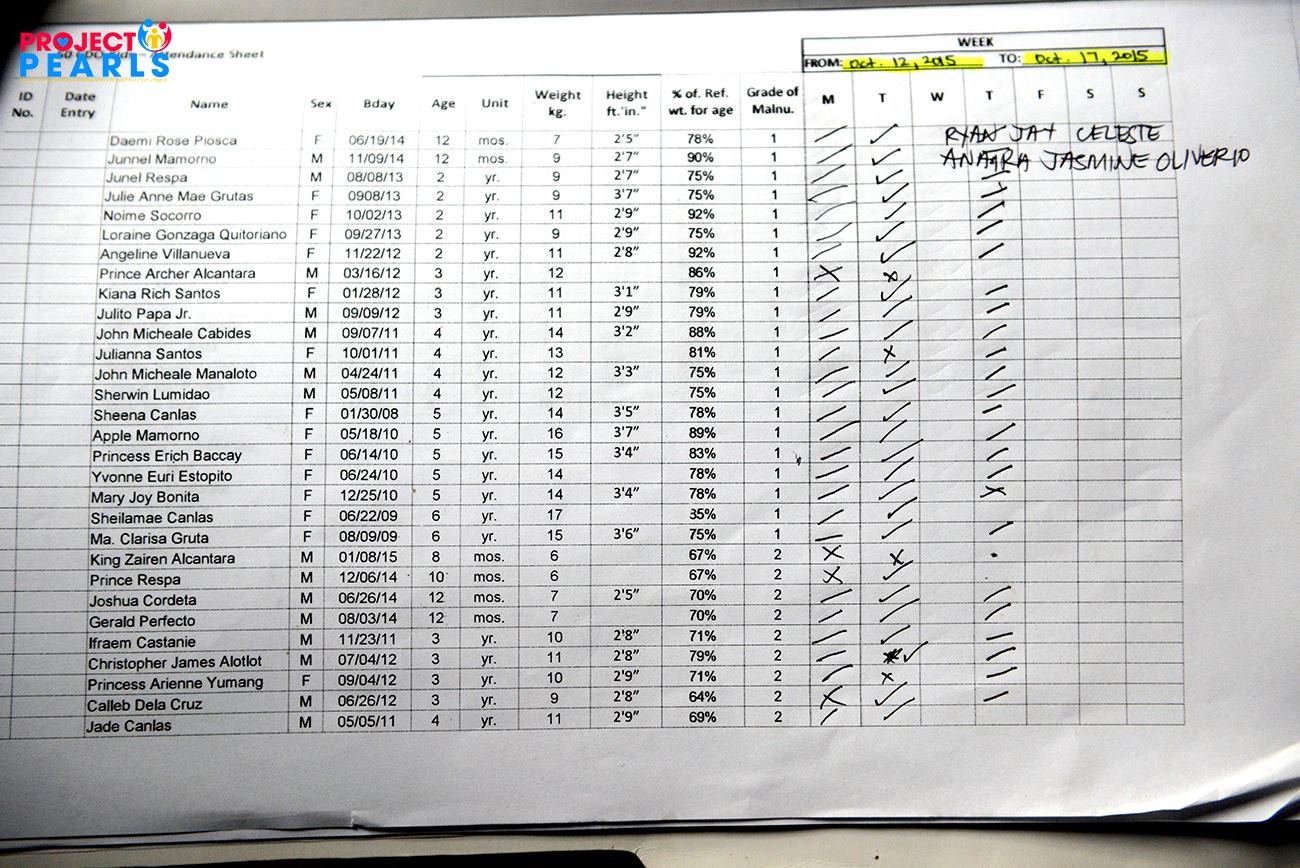 PROJECT
PEARLS
Attendance Sheet
WEEK
FROM: Oct. 12, 2015 TO: Oct. 17, 2015
ID No. Date Entry Name Sex Bday Age Unit Weight kg. Height ft.'in." % of. Ref. wt. for age Grade of Malnu. M T W T F S S
Daemi Rose Piosca F 06/19/14 12 mos. 7 2'5" 78% 1 / ✓ RYAN JAY CELESTE
Junnel Mamorno M 11/09/14 12 mos. 9 2'7" 90% 1 / ✓ JASMINE OLIVERIO
Junel Respa M 08/08/13 2 yr. 9 2'7" 75% 1 / ✓ /
Julie Anne Mae Grutas F 0908/13 2 yr. 9 3'7" 75% 1 / ✓ /
Noime Socorro F 10/02/13 2 yr. 11 2'9" 92% 1 / ✓ /
Loraine Gonzaga Quitoriano F 09/27/13 2 yr. 9 2'9" 75% 1 / ✓ /
Angeline Villanueva F 11/22/12 2 yr. 11 2'8" 92% 1 / ✓ /
Prince Archer Alcantara M 03/16/12 3 yr. 12 86% 1 X X
Kiana Rich Santos F 01/28/12 3 yr. 11 3'1" 79% 1 / ✓ /
Julito Papa Jr. M 09/09/12 3 yr. 11 2'9" 79% 1 / / /
John Micheale Cabides M 09/07/11 4 yr. 14 3'2" 88% 1 / / /
Julianna Santos F 10/01/11 4 yr. 13 81% 1 / X /
John Micheale Manaloto M 04/24/11 4 yr. 12 3'3" 75% 1 / ✓ /
Sherwin Lumidao M 05/08/11 4 yr. 12 75% 1 / ✓ /
Sheena Canlas F 01/30/08 5 yr. 14 3'5" 78% 1 / ✓ /
Apple Mamorno F 05/18/10 5 yr. 16 3'7" 89% 1 / / /
Princess Erich Baccay F 06/14/10 5 yr. 15 3'4" 83% 1 / / /
Yvonne Euri Estopito F 06/24/10 5 yr. 14 78% 1 / / /
Mary Joy Bonita F 12/25/10 5 yr. 14 3'4" 78% 1 / ✓ X
Sheilamae Canlas F 06/22/09 6 yr. 17 35% 1 / ✓
Ma. Clarisa Gruta F 08/09/09 6 yr. 15 3'6" 75% 1 / ✓ /
King Zairen Alcantara M 01/08/15 8 mos. 6 67% 2 X X .
Prince Respa M 12/06/14 10 mos. 6 67% 2 X ✓
Joshua Cordeta M 06/26/14 12 mos. 7 2'5" 70% 2 / ✓ /
Gerald Perfecto M 08/03/14 12 mos. 7 70% 2 / / /
Ifraem Castanie M 11/23/11 3 yr. 10 2'8" 71% 2 / ✓ /
Christopher James Alotlot M 07/04/12 3 yr. 11 2'8" 79% 2 / ✓ /
Princess Arienne Yumang F 09/04/12 3 yr. 10 2'9" 71% 2 / X /
Calleb Dela Cruz M 06/26/12 3 yr. 9 2'8" 64% 2 X ✓ /
Jade Canlas M 05/05/11 4 yr. 11 2'9" 69% 2 / ✓